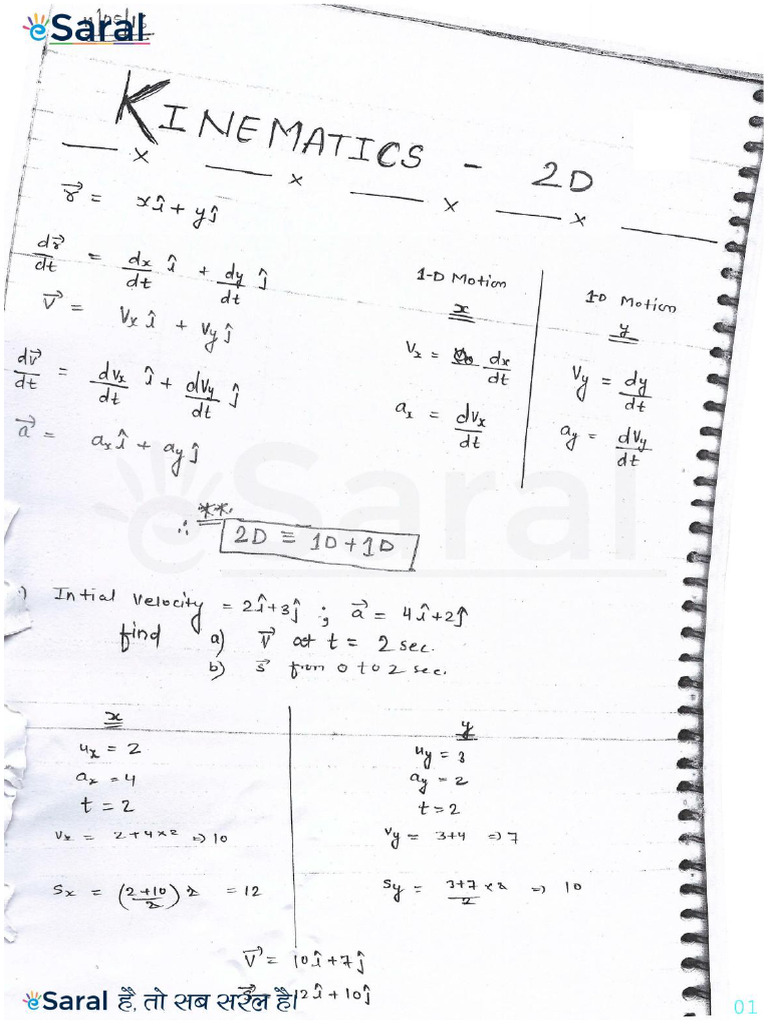 eSaral
KINEMATICS - 2D
r⃗ = xî + yĵ
dr⃗/dt = dx/dt î + dy/dt ĵ
v⃗ = Vx î + Vy ĵ
dv⃗/dt = dvx/dt î + dvy/dt ĵ
a⃗ = axî + ayĵ
1-D Motion
x
Vx = dx/dt
ax = dvx/dt
1-D Motion
y
Vy = dy/dt
ay = dvy/dt
eSaral
**
∴ 2D ≡ 1D + 1D
Intial velocity = 2î+3ĵ ; a⃗ = 4î+2ĵ
find a) v⃗ at t = 2 sec.
b) s⃗ from 0 to 2 sec.
x
ux = 2
ax = 4
t = 2
Vx = 2+4×2 => 10
Sx = (2+10/2) 2 = 12
y
uy = 3
ay = 2
t = 2
Vy = 3+4 => 7
Sy = 3+7/2 × 2 => 10
v⃗ = 10î + 7ĵ
12î + 10ĵ
eSaral है, तो सब सरल है।
01